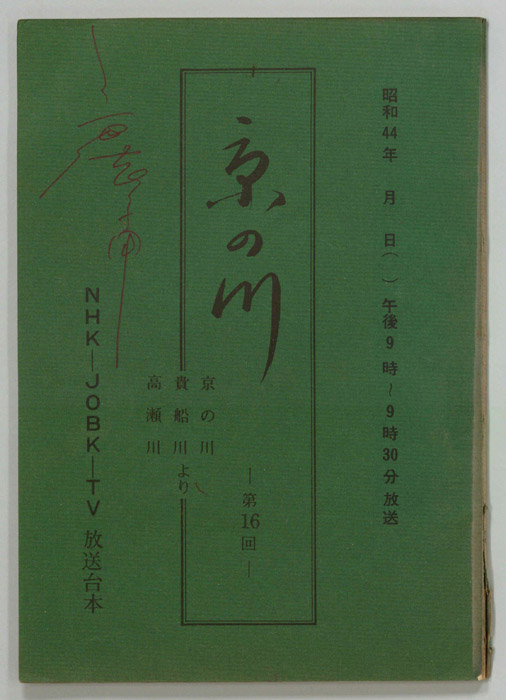 昭和44年 月 日( )午後9時~9時30分放送
京の川
―第16回―
京の川
貴船川より
高瀬川
NHK―JOBK―TV 放送台本